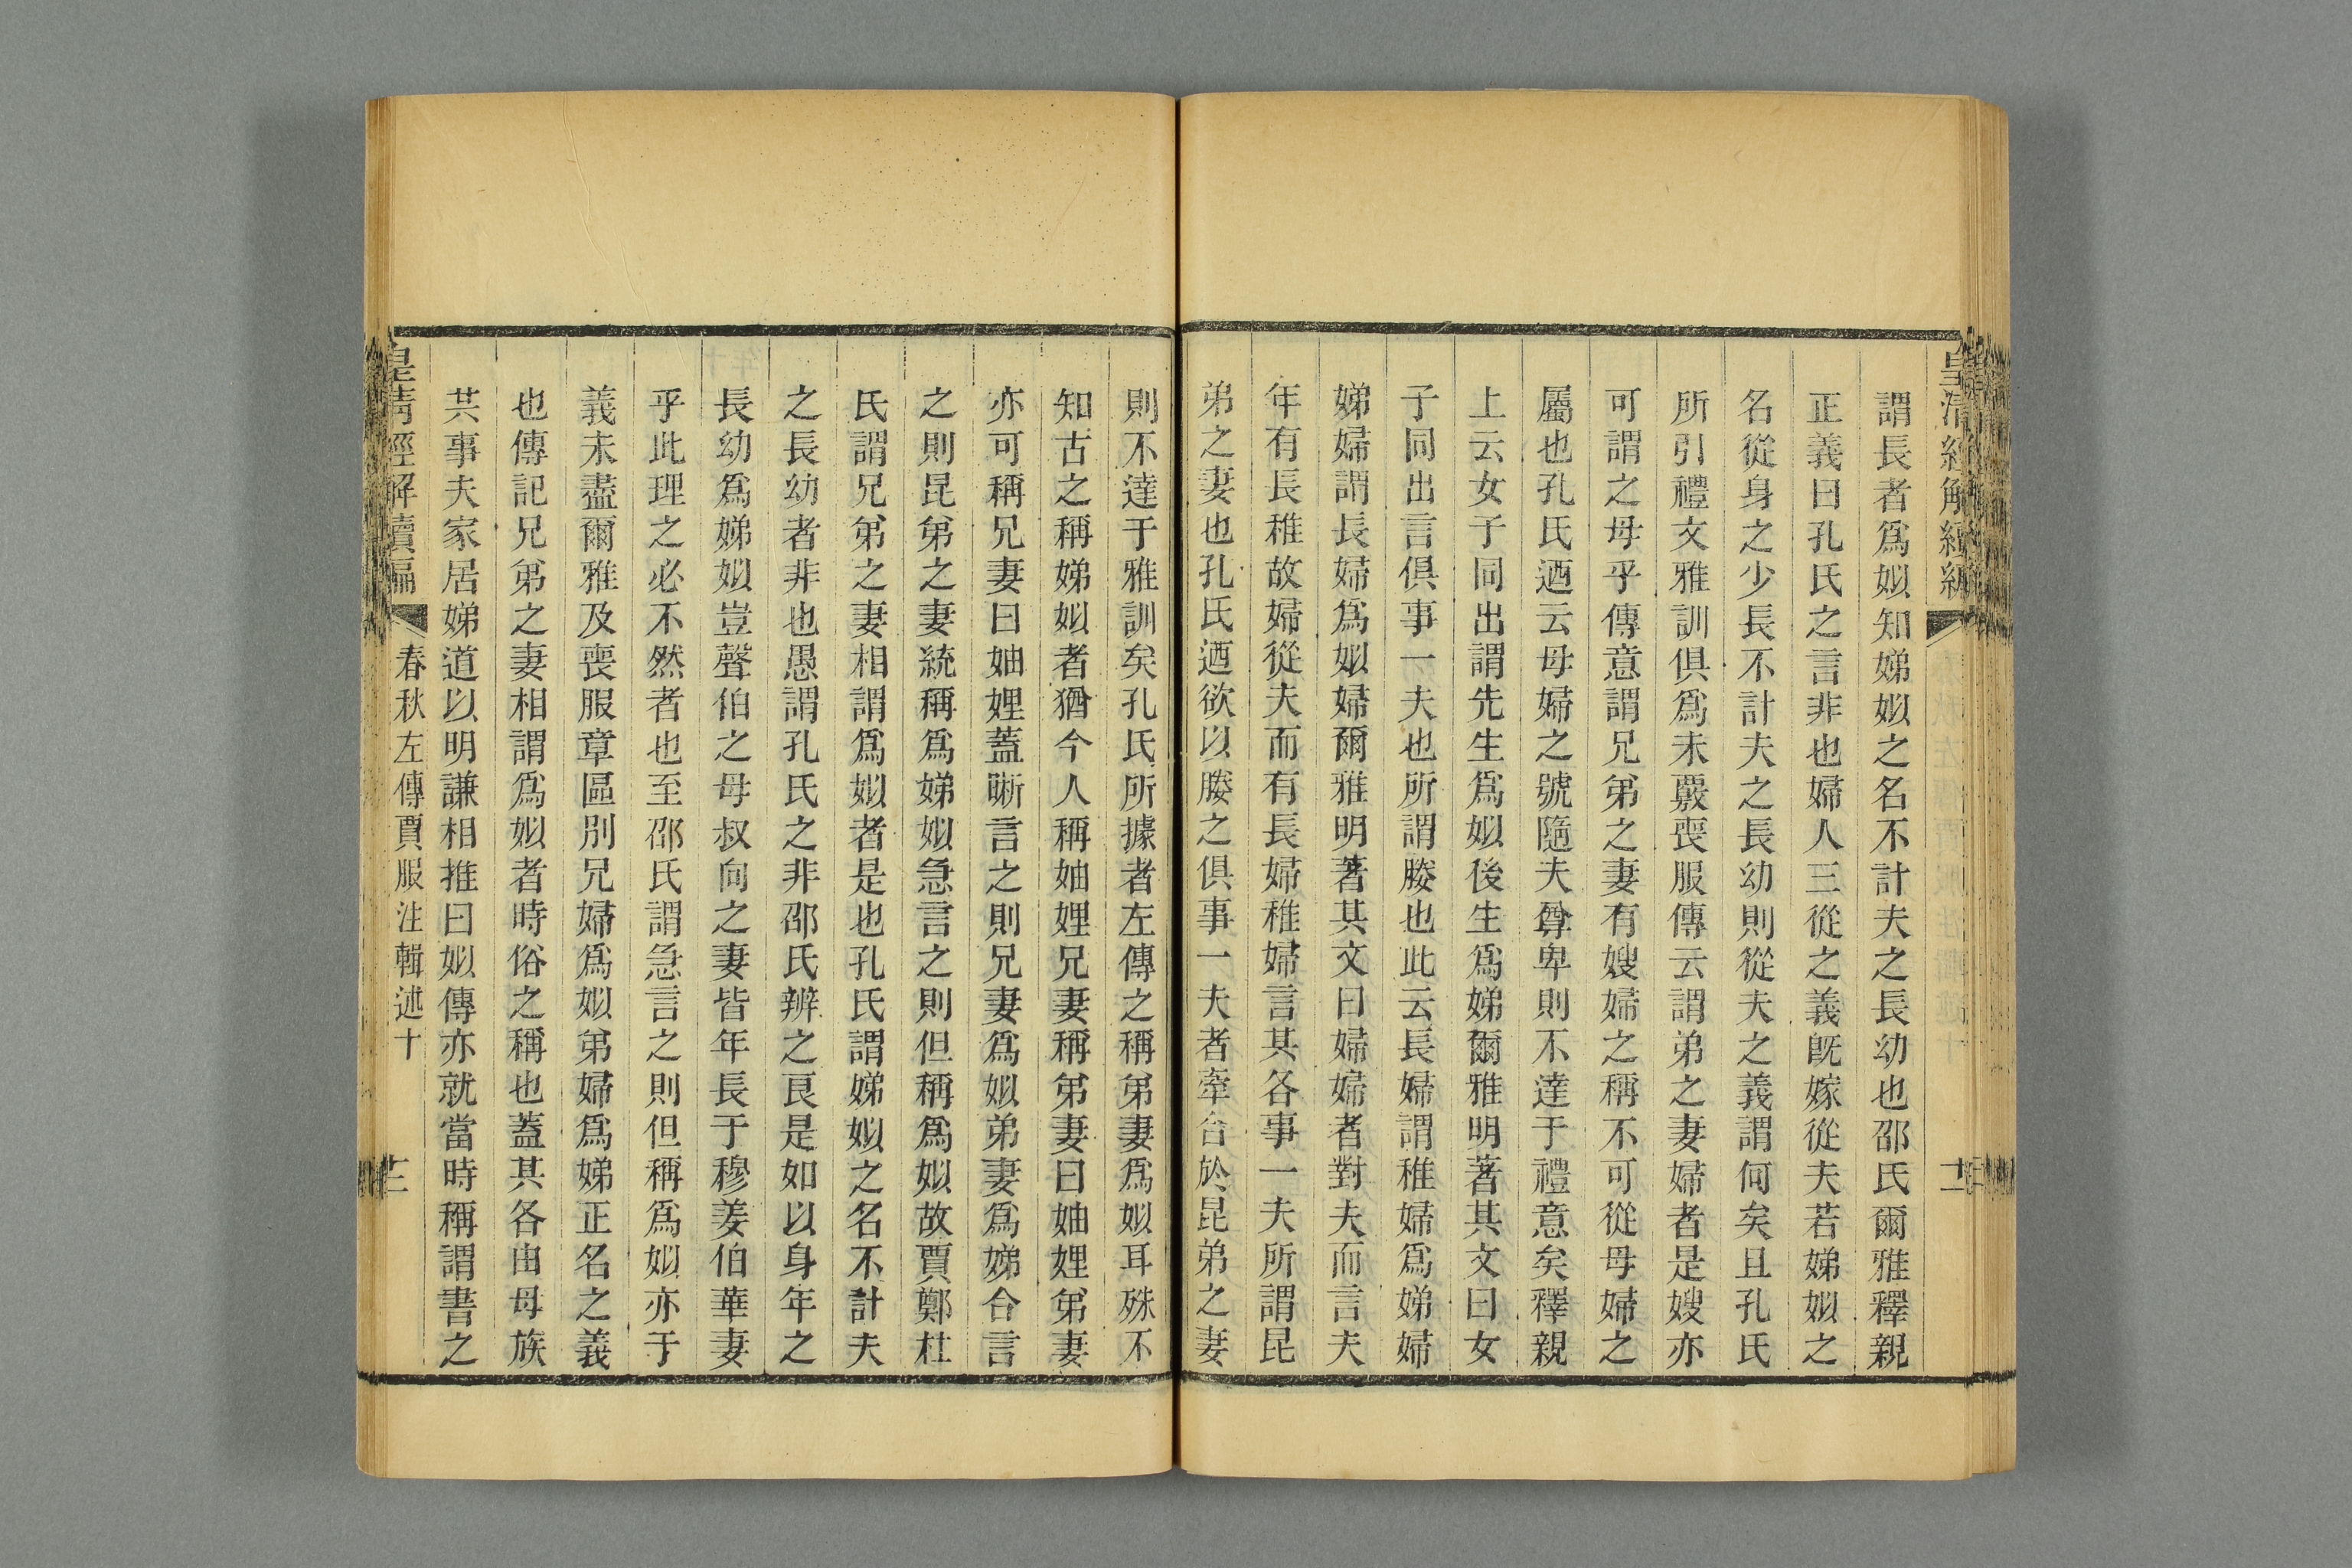 皇清經解續編
謂長者爲姒知娣姒之名不計夫之長幼也邵氏爾雅釋親
正義曰孔氏之言非也婦人三從之義既嫁從夫若娣姒之
名從身之少長不計夫之長幼則從夫之義謂何矣且孔氏
所引禮文雅訓俱爲未覈喪服傳云謂弟之妻婦者是嫂亦
可謂之母乎傳意謂兄弟之妻有嫂婦之稱不可從母婦之
屬也孔氏迺云母婦之號隨夫尊卑則不達于禮意矣釋親
上云女子同出謂先生爲姒後生爲娣爾雅明著其文曰女
子同出言俱事一夫也所謂媵也此云長婦謂稚婦爲娣婦
娣婦謂長婦爲姒婦爾雅明著其文曰婦婦者對夫而言夫
年有長稚故婦從夫而有長婦稚婦言其各事一夫所謂昆
弟之妻也孔氏迺欲以媵之俱事一夫者牽合於昆弟之妻
則不達于雅訓矣孔氏所據者左傳之稱弟妻爲姒耳殊不
知古之稱娣姒者猶今人稱妯娌兄妻稱弟妻曰妯娌弟妻
亦可稱兄妻曰妯娌蓋晰言之則兄妻爲姒弟妻爲娣合言
之則昆弟之妻統稱爲娣姒急言之則但稱爲姒故賈鄭杜
氏謂兄弟之妻相謂爲姒者是也孔氏謂娣姒之名不計夫
之長幼者非也愚謂孔氏之非邵氏辨之良是如以身年之
長幼爲娣姒豈聲伯之母叔向之妻皆年長于穆姜伯華妻
乎此理之必不然者也至邵氏謂急言之則但稱爲姒亦于
義未盡爾雅及喪服章區別兄婦爲姒弟婦爲娣正名之義
也傳記兄弟之妻相謂爲姒者時俗之稱也蓋其各由母族
共事夫家居娣道以明謙相推曰姒傳亦就當時稱謂書之
皇清經解續編 春秋左傳賈服注輯述十